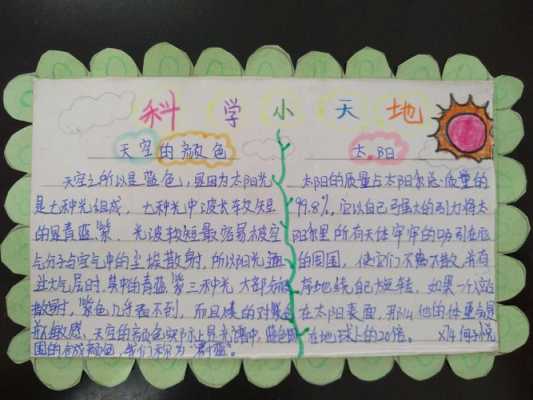 科学小天地
天空的颜色
天空之所以是蓝色,是因为太阳光
是七种光组成,七种光中波长较短
的是青蓝紫,光波较短最容易被空
气分子与空气中的尘埃散射,所以阳光
过大气层时,其中的青蓝紫三种光大部分
散射,紫色几乎看不到,而且
敏感,天空的颜色实际上是光谱中,蓝色
的合成颜色,我们称为"蔚蓝"。
太阳
太阳的质量占太阳系总质量的
99.8%,它以自己强大的引力将太
阳系里所有天体牢牢的吸引在
的周围,使它们不离不散,井有
地绕自己旋转。如果一个
在太阳表面,那么他的体重
在地球上的20倍。